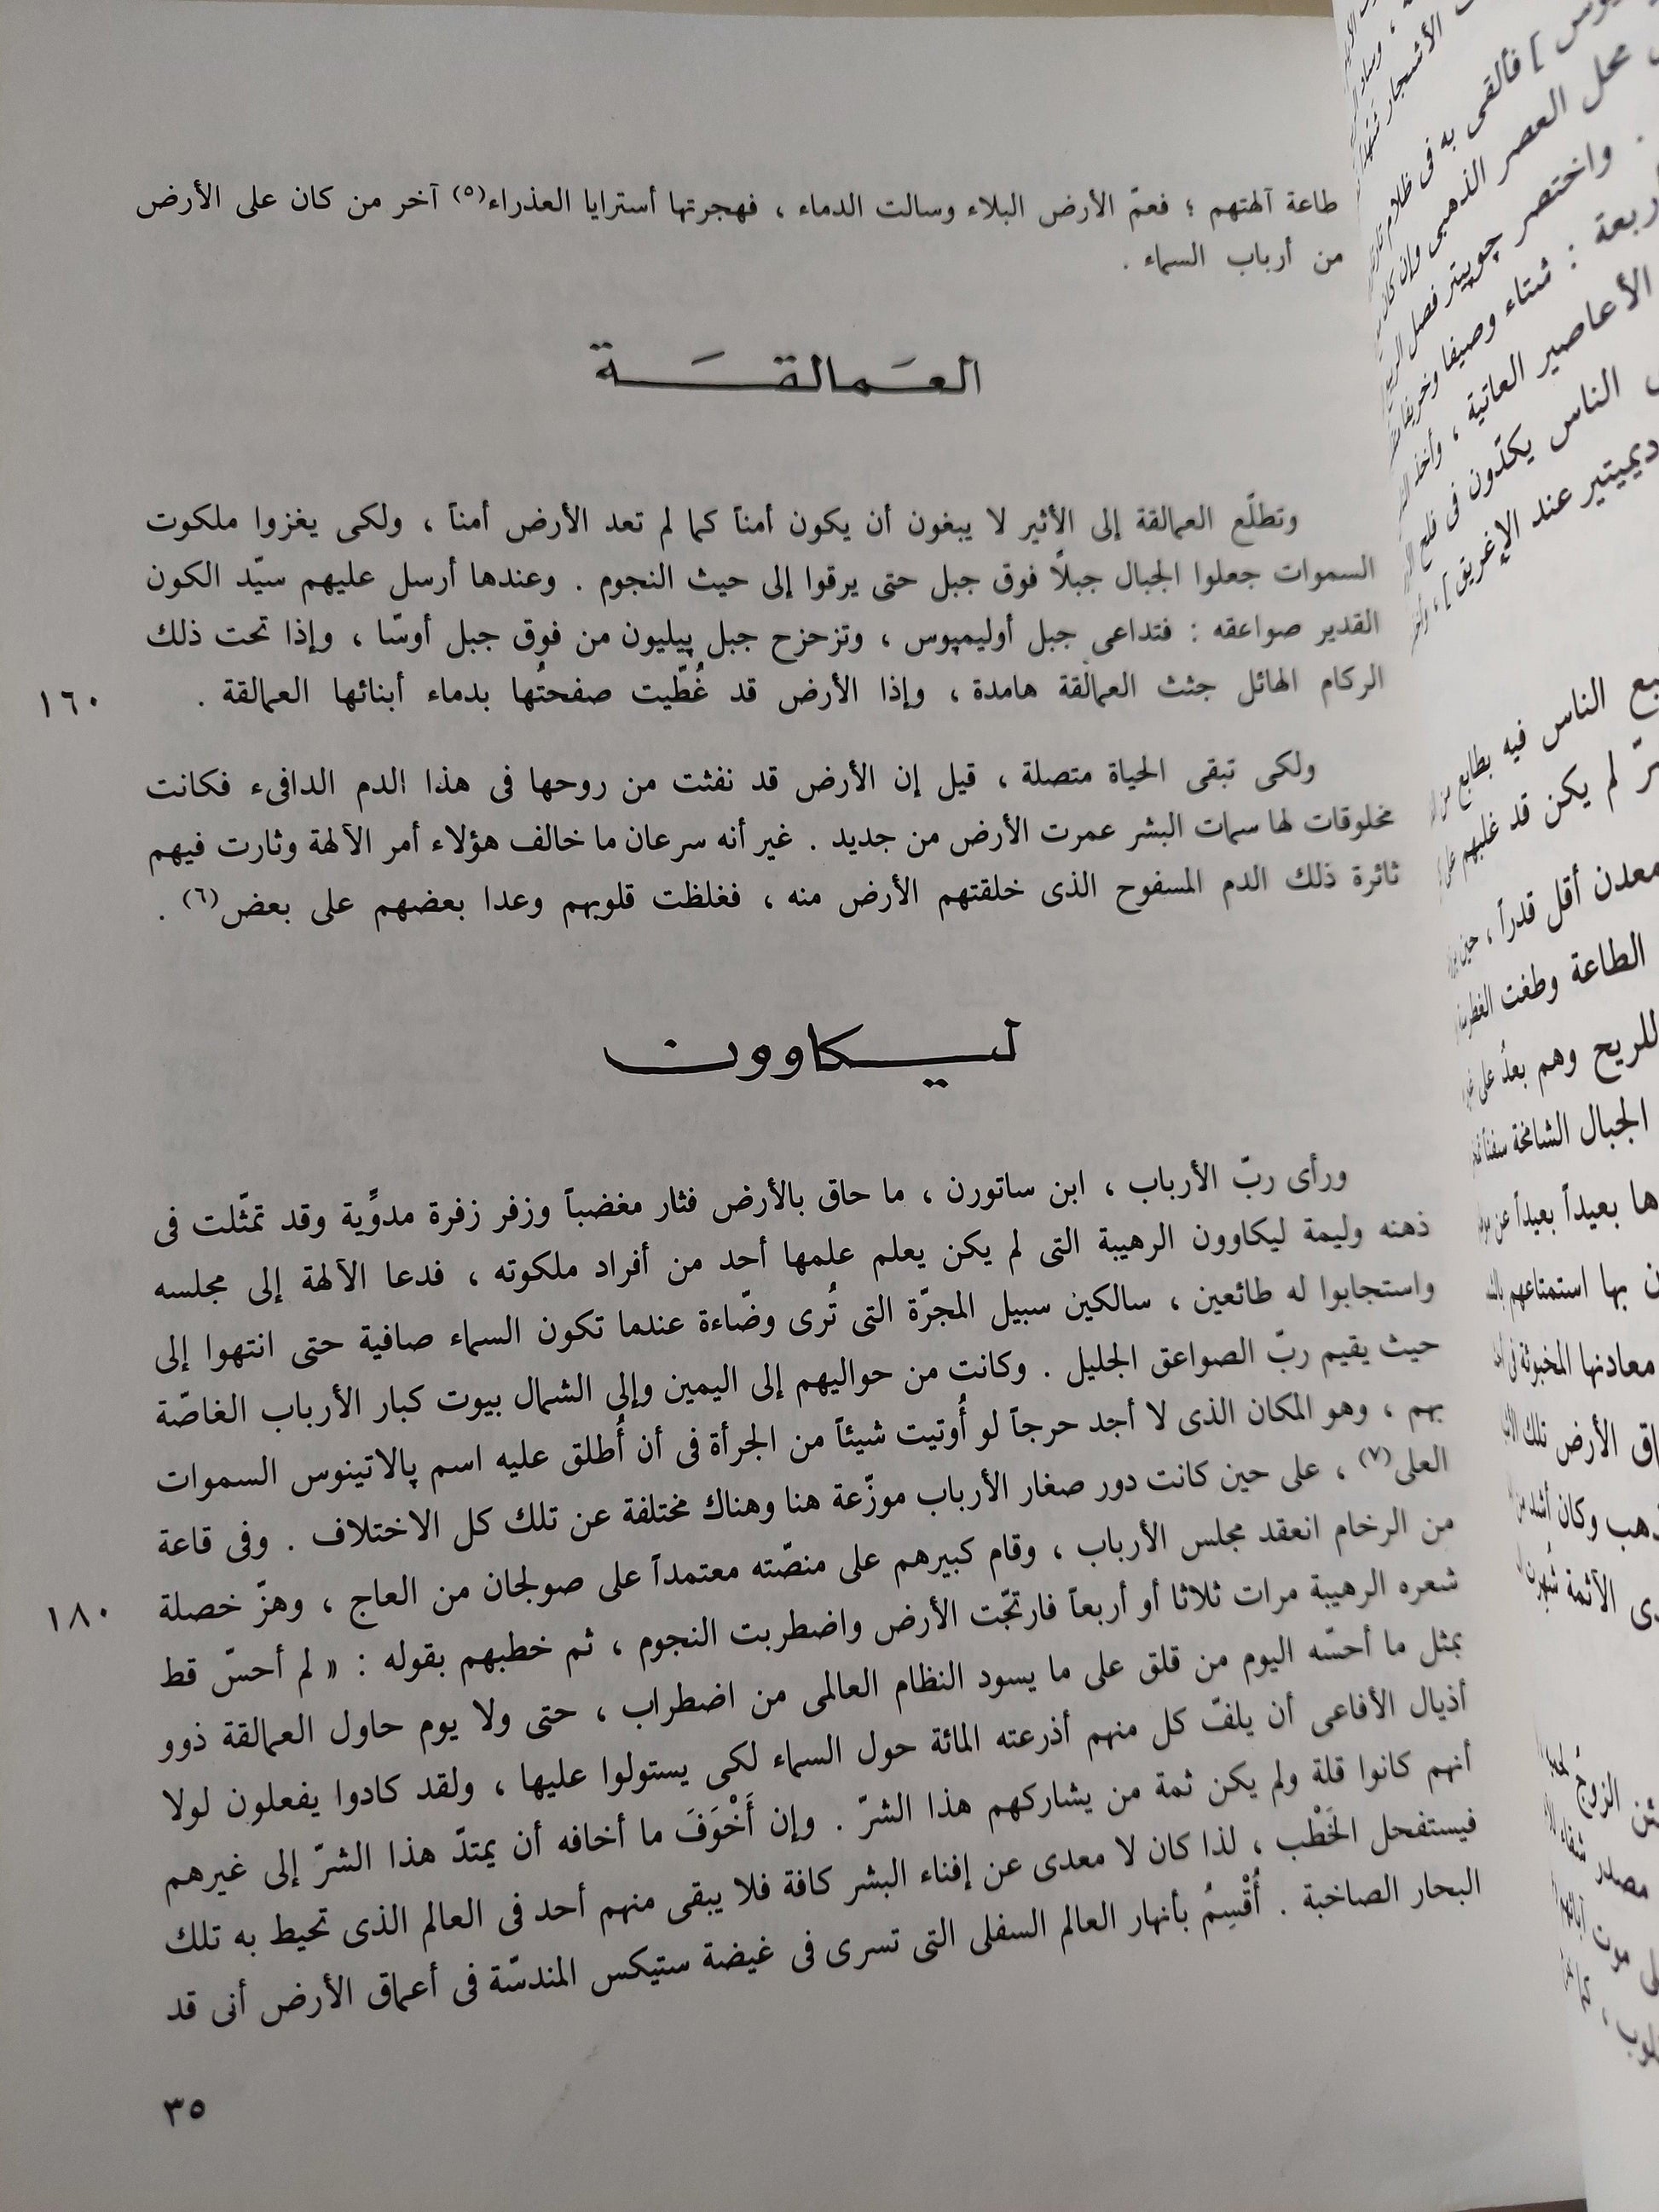 طاعة آلهتهم ؛ فعمّ الأرض البلاء وسالت الدماء ، فهجرتها أسترايا العذراء(٥) آخر من كان على الأرض
من أرباب السماء .
العمالقة
وتطلّع العمالقة إلى الأثير لا يبغون أن يكون أمناً كما لم تعد الأرض أمناً ، ولكى يغزوا ملكوت
السموات جعلوا الجبال جبلاً فوق جبل حتى يرقوا إلى حيث النجوم . وعندها أرسل عليهم سيّد الكون
القدير صواعقه : فتداعى جبل أوليمپوس ، وتزحزح جبل پيليون من فوق جبل أوسّا ، وإذا تحت ذلك
الركام الهائل جثث العمالقة هامدة ، وإذا الأرض قد غُطّيت صفحتُها بدماء أبنائها العمالقة .
١٦٠
ولكى تبقى الحياة متصلة ، قيل إن الأرض قد نفثت من روحها فى هذا الدم الدافىء فكانت
مخلوقات لها سمات البشر عمرت الأرض من جديد . غير أنه سرعان ما خالف هؤلاء أمر الآلهة وثارت فيهم
ثائرة ذلك الدم المسفوح الذى خلقتهم الأرض منه ، فغلظت قلوبهم وعدا بعضهم على بعض(٦) .
ليكاوون
ورأى ربّ الأرباب ، ابن ساتورن ، ما حاق بالأرض فثار مغضباً وزفر زفرة مدوّية وقد تمّثلت فى
ذهنه وليمة ليكاوون الرهيبة التى لم يكن يعلم علمها أحد من أفراد ملكوته ، فدعا الآلهة إلى مجلسه
واستجابوا له طائعين ، سالكين سبيل المجرّة التى تُرى وضّاءة عندما تكون السماء صافية حتى انتهوا إلى
حيث يقيم ربّ الصواعق الجليل . وكانت من حواليهم إلى اليمين وإلى الشمال بيوت كبار الأرباب الغاصّة
بهم ، وهو المكان الذى لا أجد حرجاً لو أُوتيت شيئاً من الجرأة فى أن أُطلق عليه اسم پالاتينوس السموات
العلى(٧) ، على حين كانت دور صغار الأرباب موزّعة هنا وهناك مختلفة عن تلك كل الاختلاف . وفى قاعة
من الرخام انعقد مجلس الأرباب ، وقام كبيرهم على منصّته معتمداً على صولجان من العاج ، وهزّ خصلة
١٨٠
شعره الرهيبة مرات ثلاثا أو أربعاً فارتجّت الأرض واضطربت النجوم ، ثم خطبهم بقوله : « لم أحسّ قط
بمثل ما أحسّه اليوم من قلق على ما يسود النظام العالمى من اضطراب ، حتى ولا يوم حاول العمالقة ذوو
أذيال الأفاعى أن يلفّ كل منهم أذرعته المائة حول السماء لكى يستولوا عليها ، ولقد كادوا يفعلون لولا
أنهم كانوا قلة ولم يكن ثمة من يشاركهم هذا الشرّ . وإن أَخْوَفَ ما أخافه أن يمتدّ هذا الشرّ إلى غيرهم
فيستفحل الخَطْب ، لذا كان لا معدى عن إفناء البشر كافة فلا يبقى منهم أحد فى العالم الذى تحيط به تلك
البحار الصاخبة . أُقْسِمُ بأنهار العالم السفلى التى تسرى فى غيضة ستيكس المندسّة فى أعماق الأرض أنى قد
٣٥